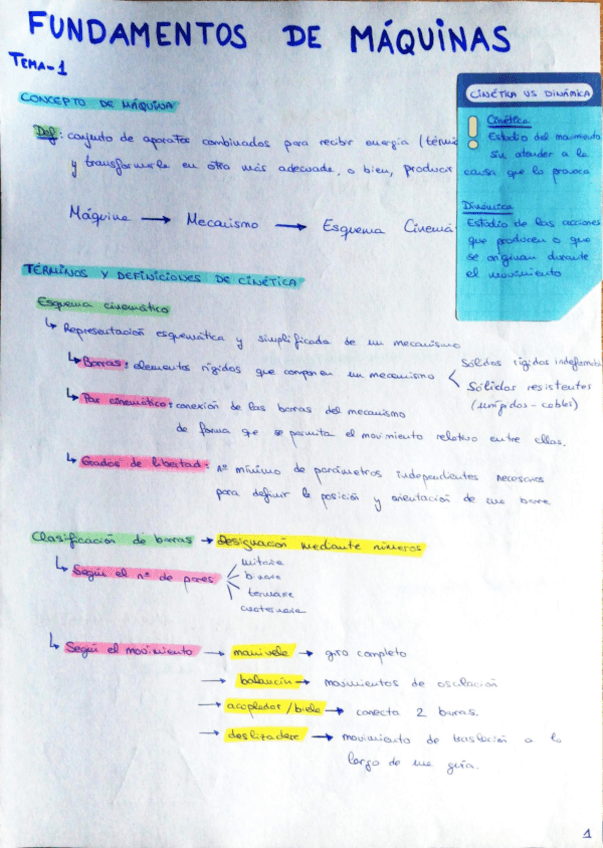 FUNDAMENTOS DE MÁQUINAS
TEMA-1
CONCEPTO DE MÁQUINA
Def: conjunto de aparatos combinados para recibir energía (térmic
y transformarla en otra más adecuada, o bien, producir
Máquina → Mecanismo → Esquema Cinemá
CINÉTICA VS DINÁMICA
! Cinética
Estudio del movimiento
sin atender a la
causa que lo provoca
Dinámica
Estudio de las acciones
que producen o que
se originan durante
el movimiento
TÉRMINOS Y DEFINICIONES DE CINÉTICA
Esquema cinemático
↳ Representación esquemática y simplificada de un mecanismo
↳ Barras: elementos rígidos que componen un mecanismo
Sólidos rígidos indeforma
Sólidos resistentes
(unrígidos - cables)
↳ Par cinemático: conexión de las barras del mecanismo
de forma que se permita el movimiento relativo entre ellas.
↳ Grados de libertad: nº mínimo de parámetros independientes necesarios
para definir la posición y orientación de una barra
Clasificación de barras → Designación mediante números
↳ Según el nº de pares
unitaria
binaria
ternaria
cuaternaria
↳ Según el movimiento → manivela → giro completo
→ balancín → movimientos de oscilación
→ acoplador / biela → conecta 2 barras.
→ deslizadera → movimiento de traslación a lo
largo de una guía.
1